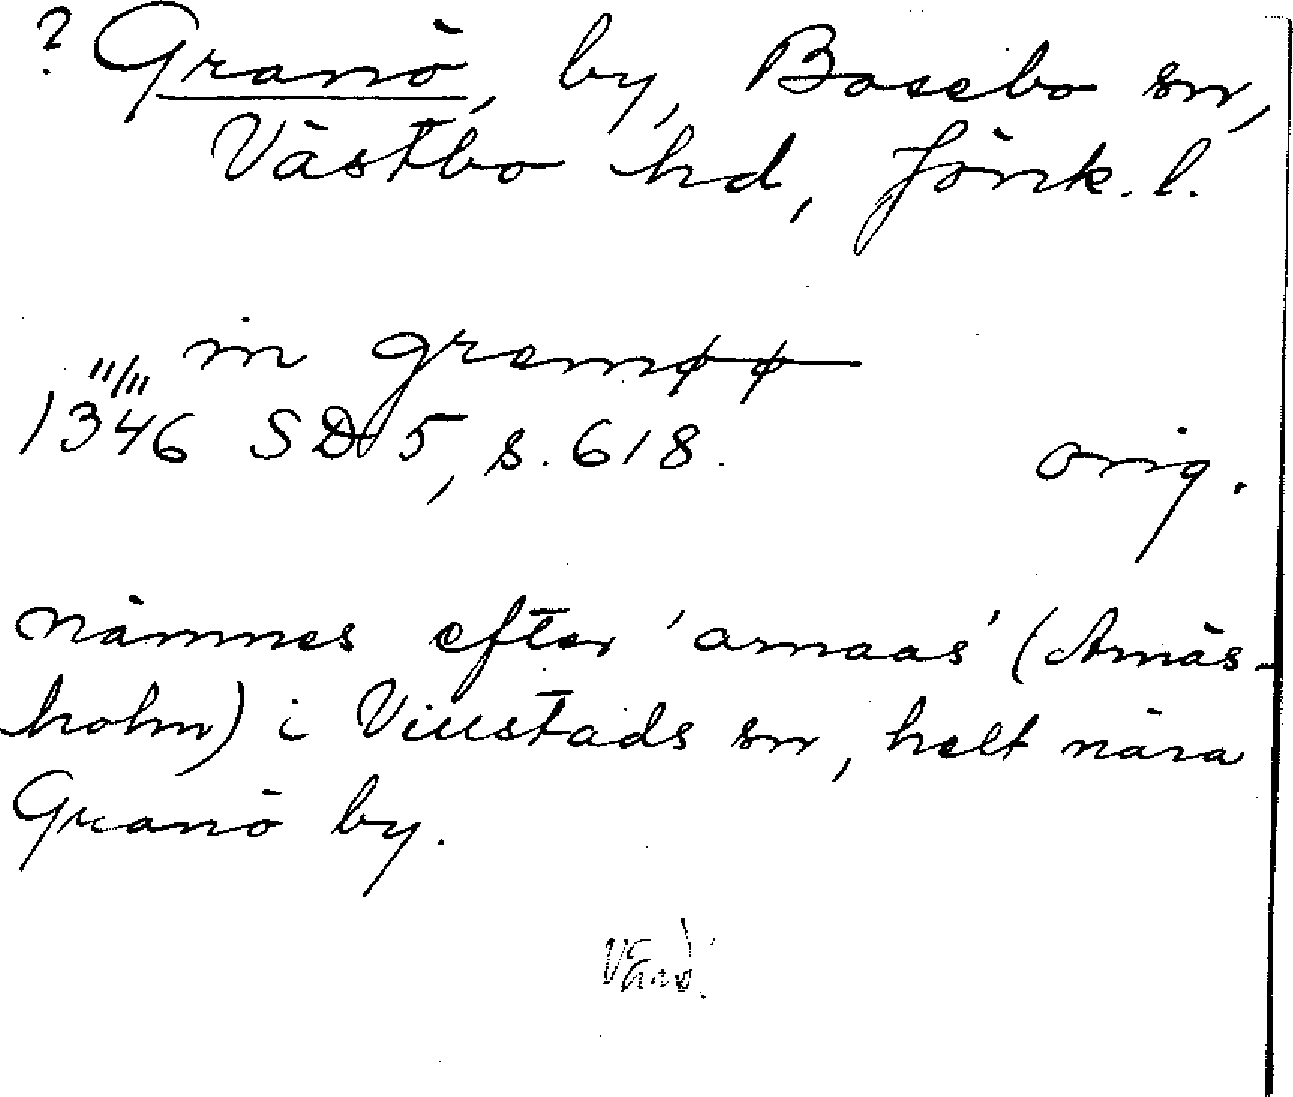 ? Granö, by, Bosebo sn,
Västbo hd, Jönk. l.
in grenøø
11/11
1346 SD 5, s. 618. orig.
nämnes efter 'arnaas' (Arnäs-
holm) i Villstads sn, helt nära
Granö by.
Vänd!